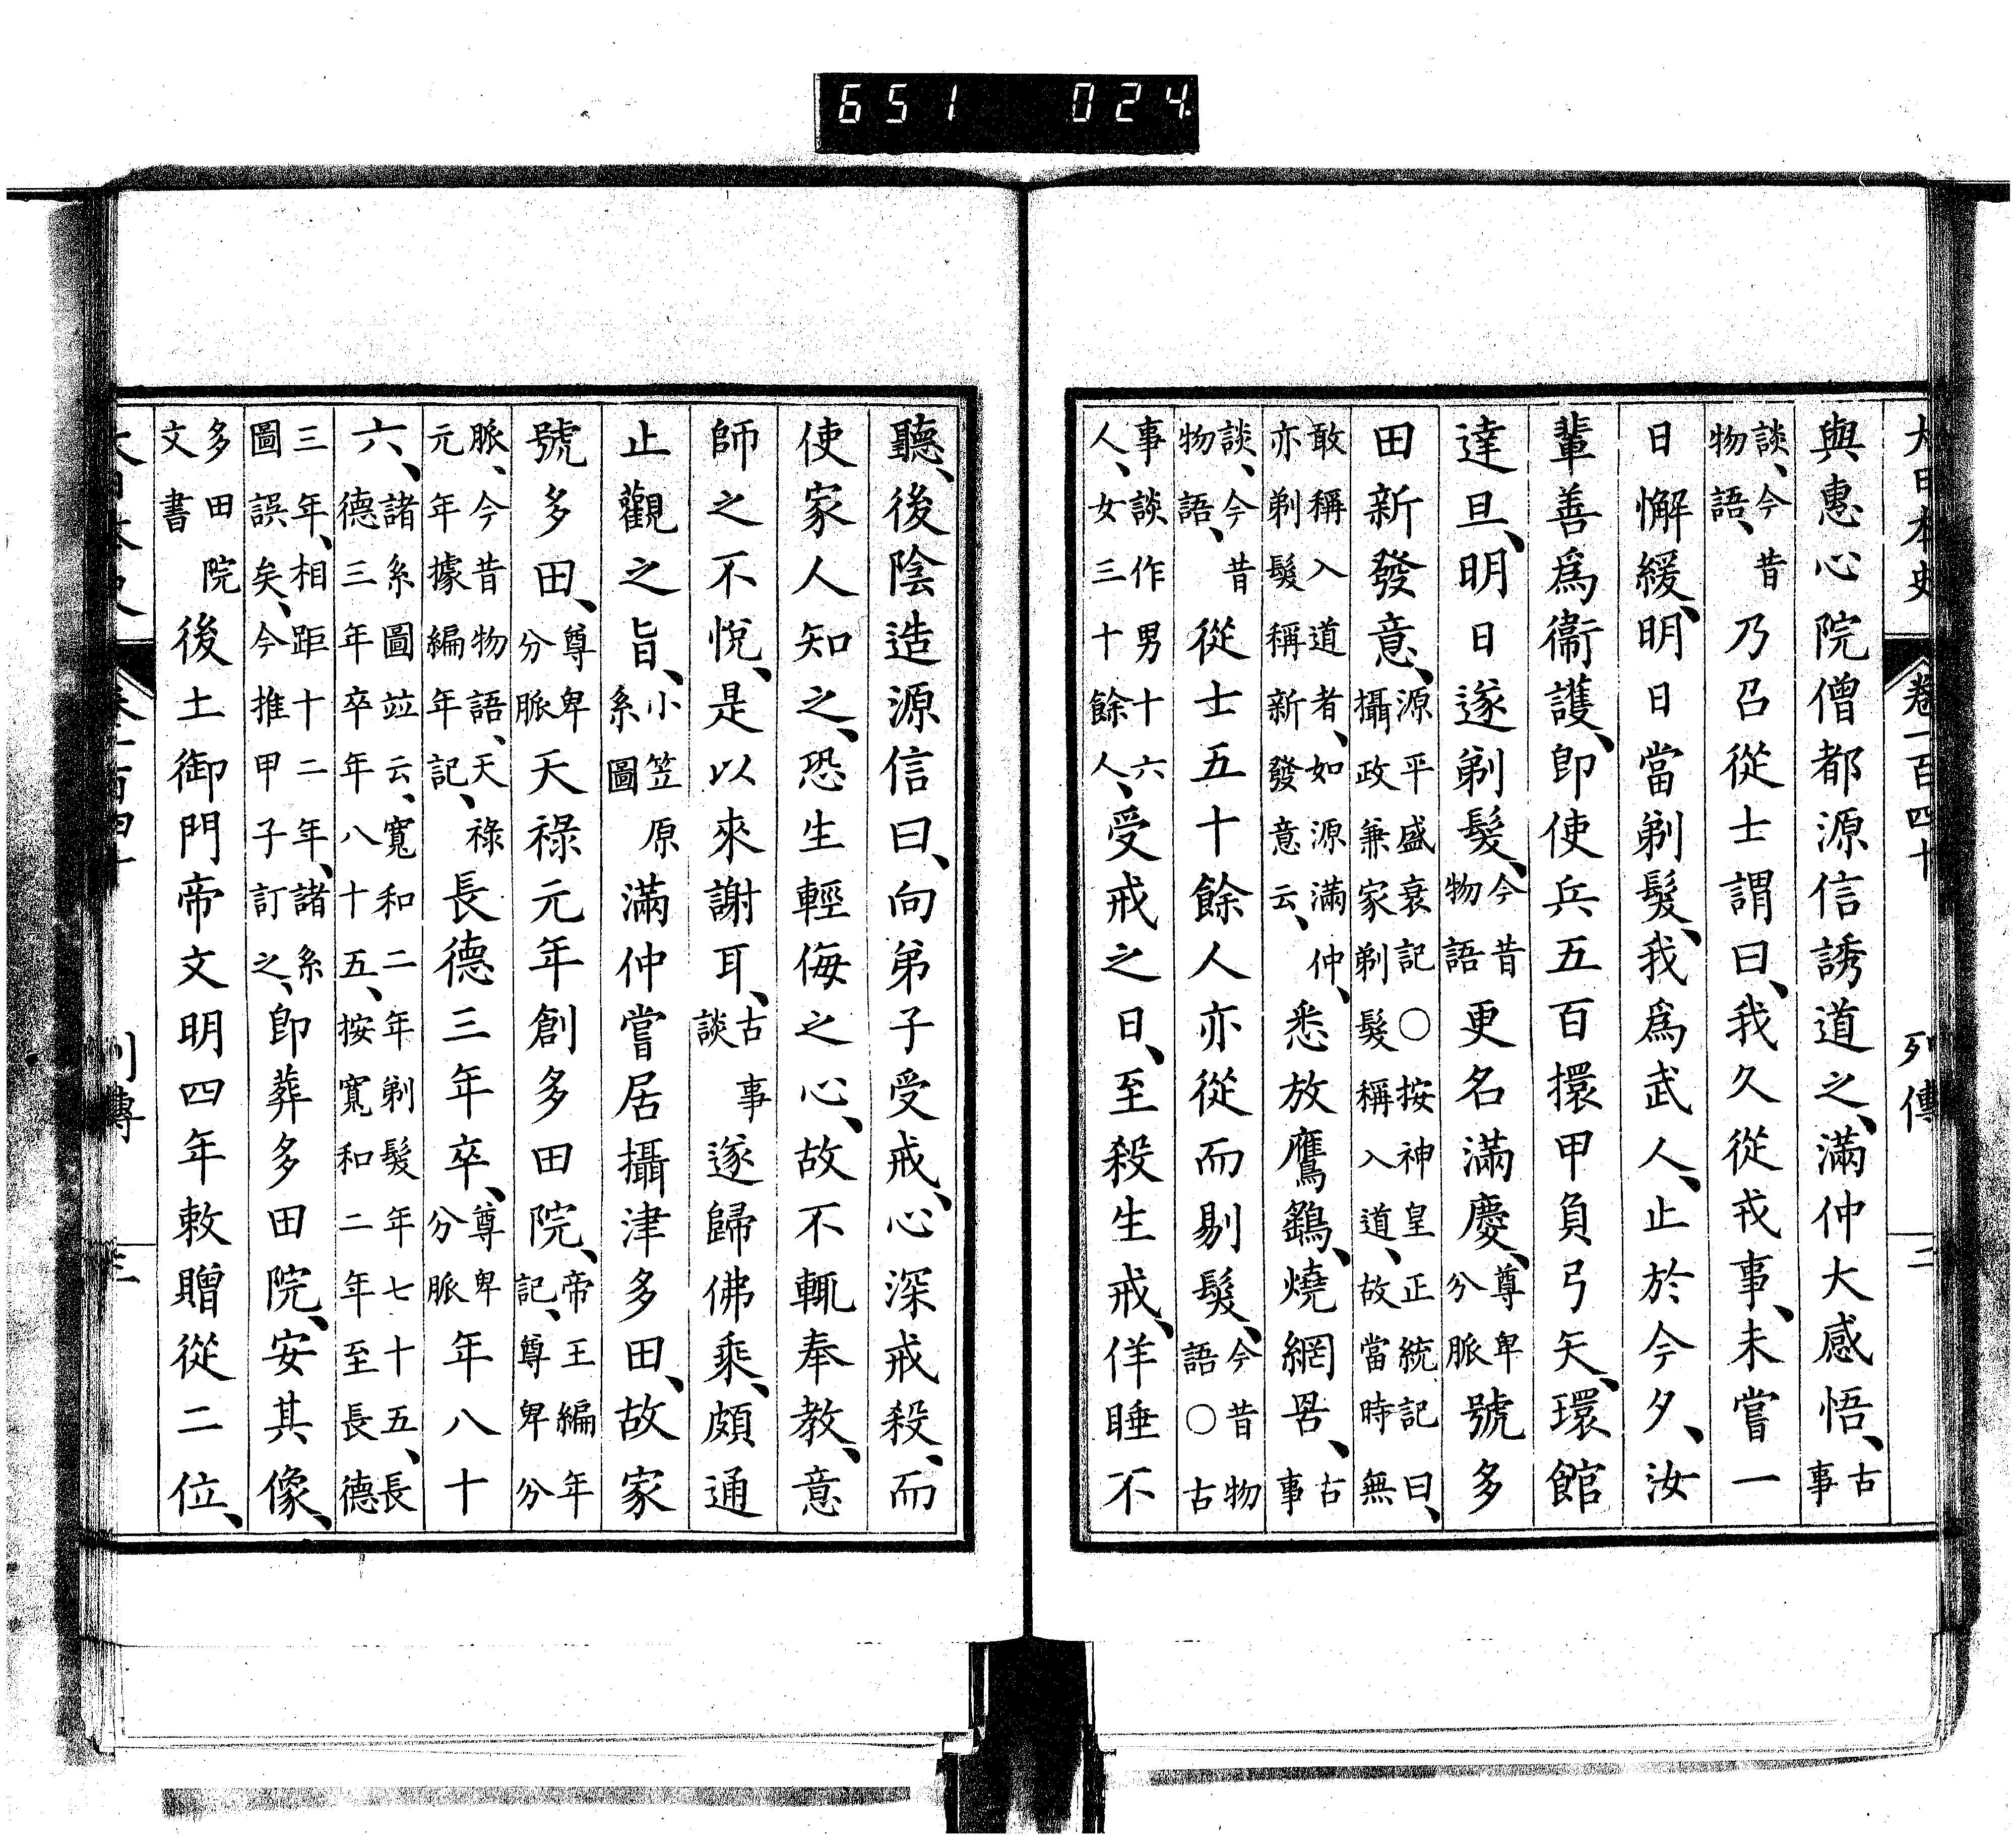 651 024
大日本史 卷一百四十 列傳 二
與惠心院僧都源信誘道之、滿仲大感悟、古事
談、今昔物語、乃召從士謂曰、我久從戎事、未嘗一
日懈緩、明日當剃髮、我爲武人、止於今夕、汝
輩善爲衞護、卽使兵五百擐甲負弓矢、環館
達旦、明日遂剃髮、今昔物語更名滿慶、尊卑分脈號多
田新發意、源平盛衰記○按神皇正統記曰、攝政兼家剃髮稱入道、故當時無
敢稱入道者、如源滿仲、亦剃髮稱新發意云、悉放鷹鷂、燒網罟、古事
談、今昔物語、從士五十餘人亦從而剔髮、今昔物語○古
事談作男十六人、女三十餘人、受戒之日、至殺生戒、佯睡不
聽、後陰造源信曰、向弟子受戒、心深戒殺、而
使家人知之、恐生輕侮之心、故不輒奉教、意
師之不悅、是以來謝耳、古事談遂歸佛乘、頗通
止觀之旨、小笠原系圖滿仲嘗居攝津多田、故家
號多田、尊卑分脈天祿元年創多田院、帝王編年記、尊卑分
脈、今昔物語、天祿元年據編年記、長德三年卒、尊卑分脈年八十
六、諸系圖竝云、寬和二年剃髮年七十五、長德三年卒年八十五、按寬和二年至長德
三年、相距十二年、諸系圖誤矣、今推甲子訂之、卽葬多田院、安其像、
多田院文書後土御門帝文明四年敕贈從二位、